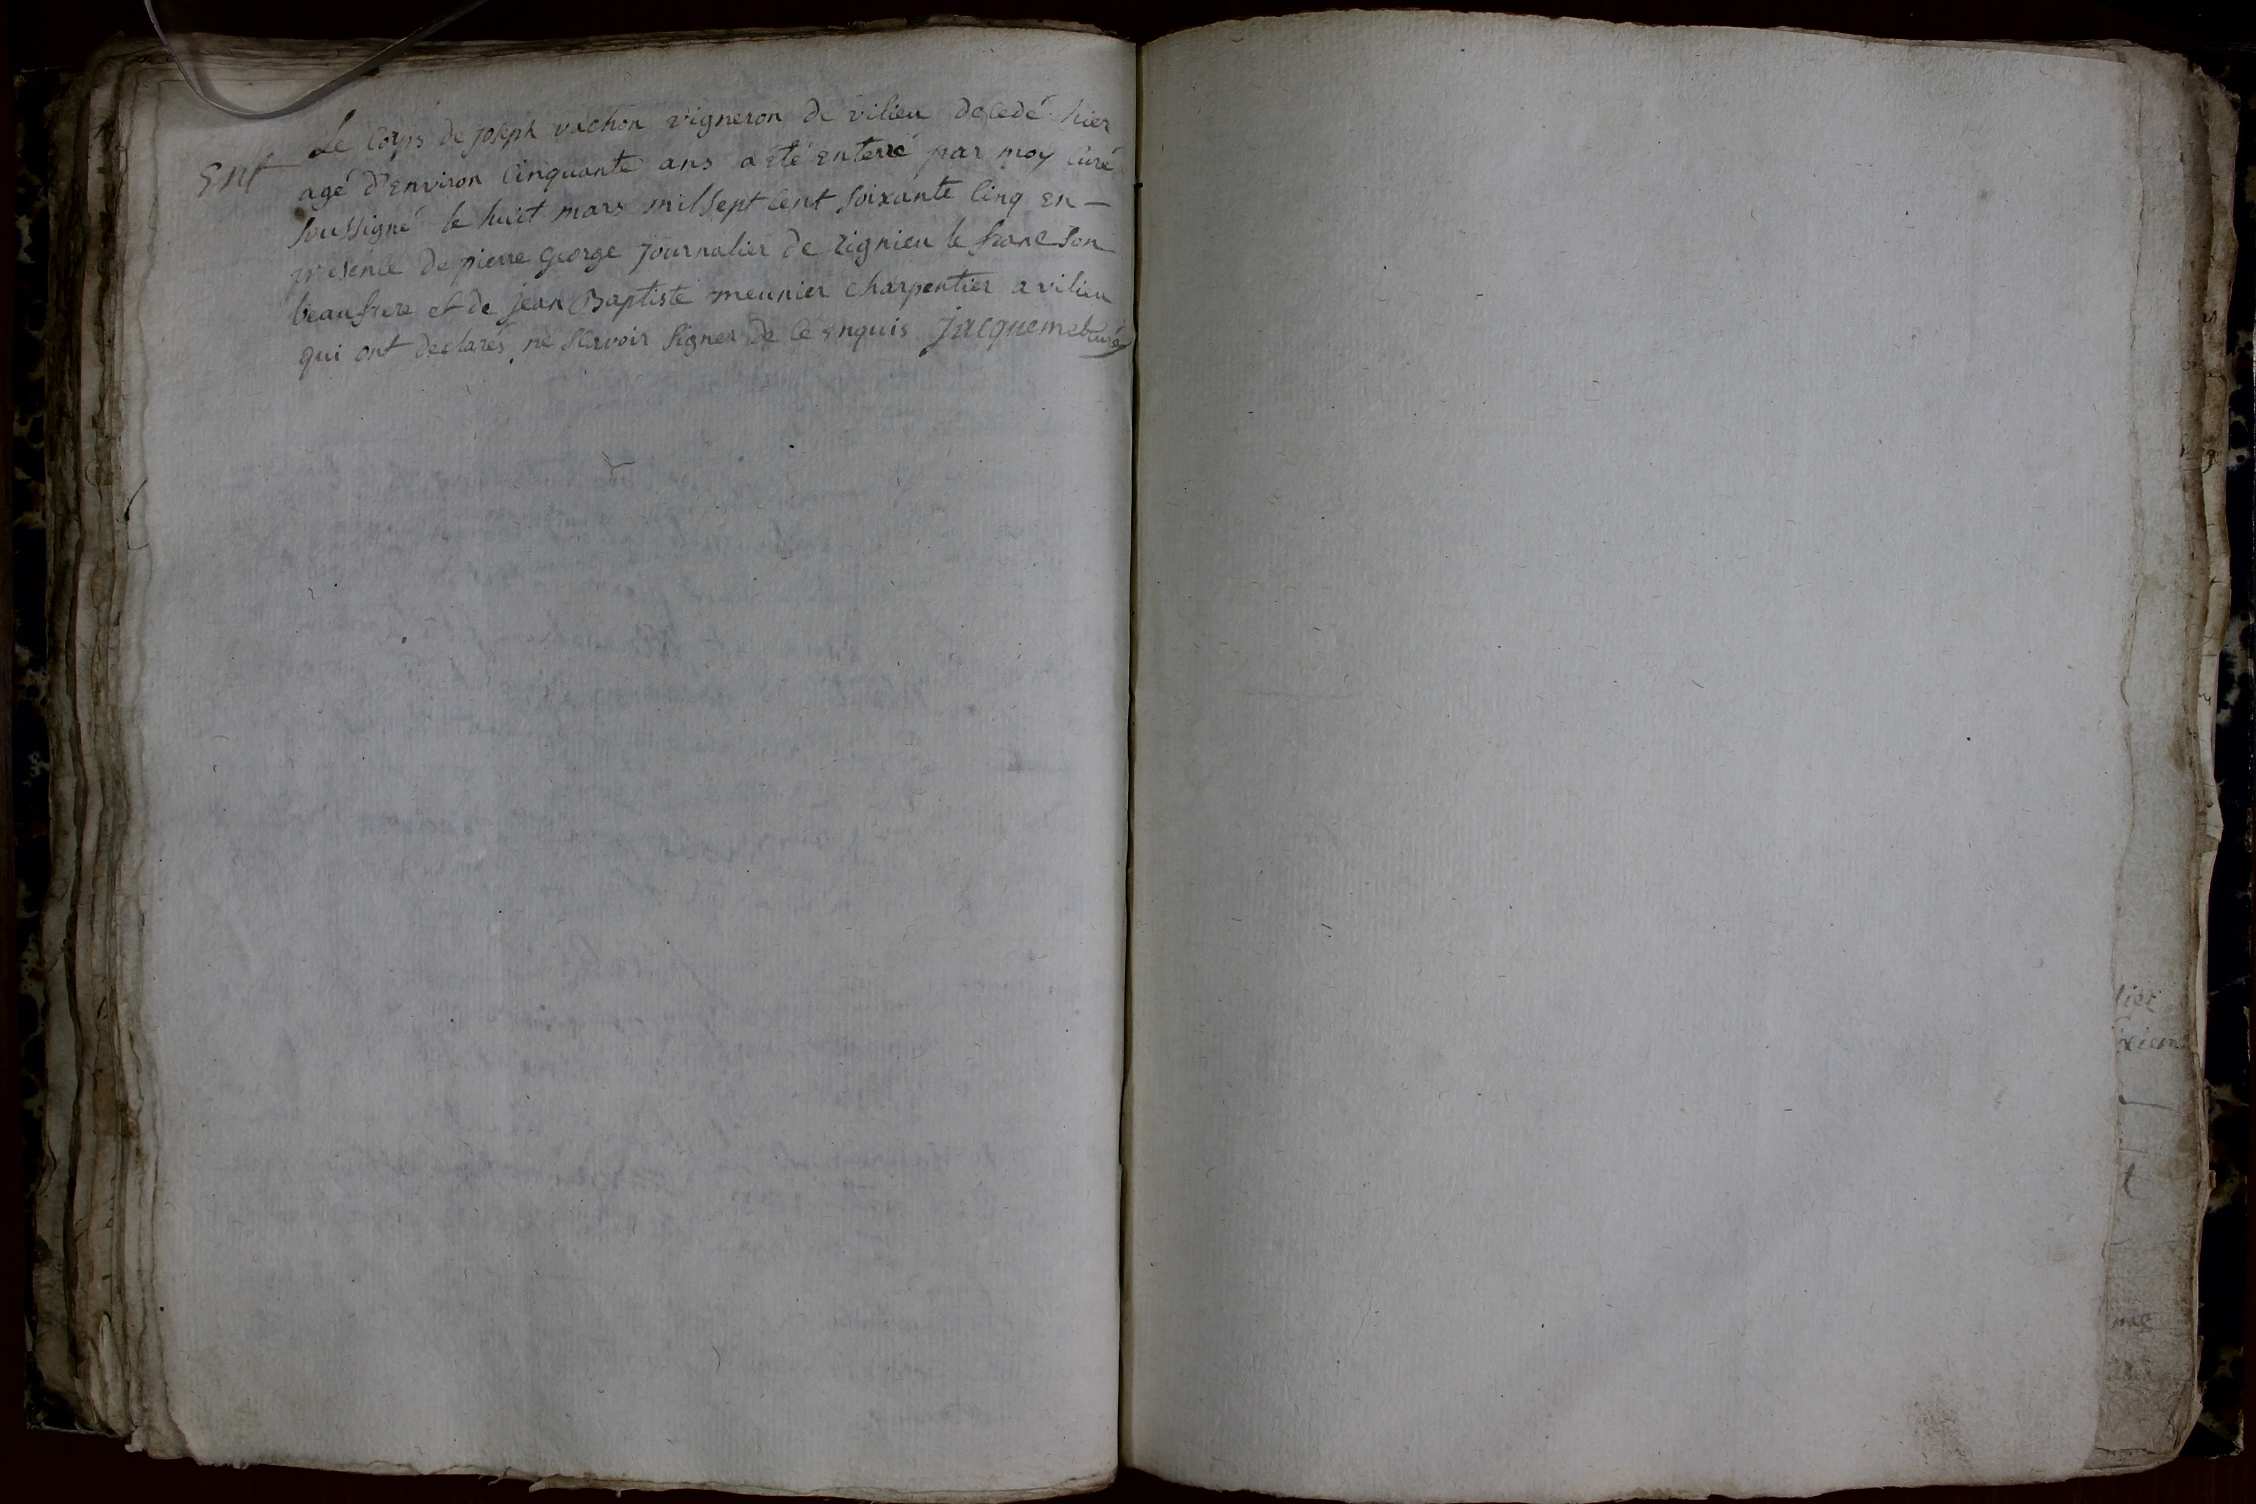 Ent
Le Corps de joseph vachon vigneron de vilieu decedé hier
agé d'Environ Cinquante ans a Eté Enterré par moy Curé
soussigné le huit mars mil sept cent soixante cinq En –
presence de pierre george journalier de rignieu le franc son
beaufrere et de jean Baptiste meunier charpentier a vilieu
qui ont declarés ne scavoir signer de ce Enquis jacquemet curé
lier
xiem
t